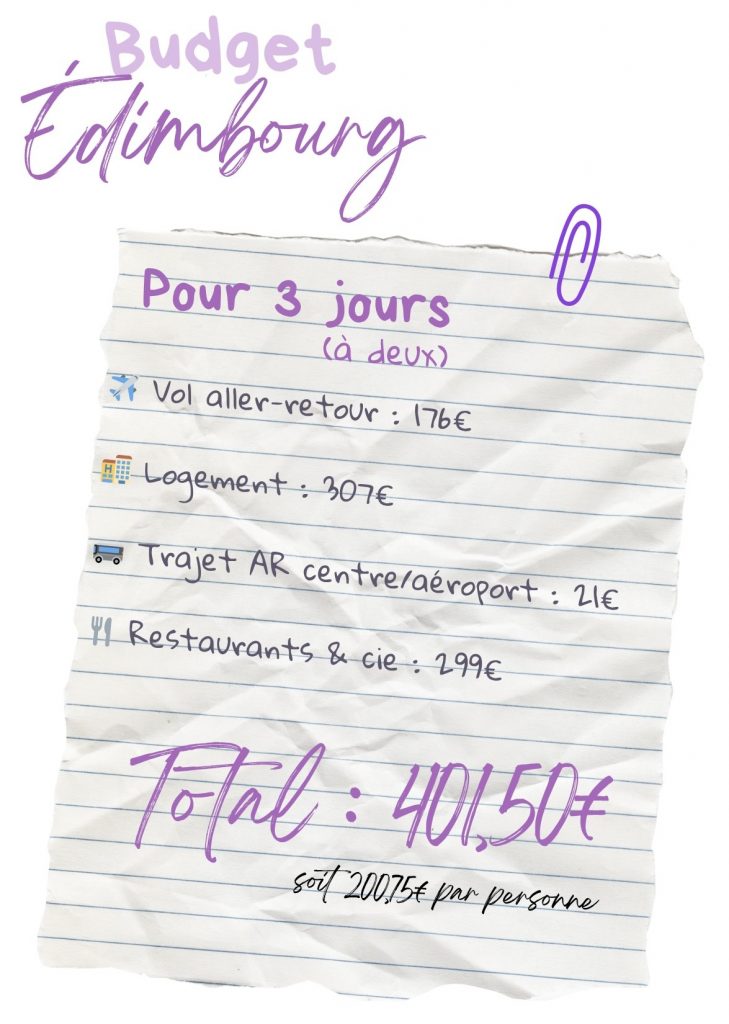 Budget
Édimbourg
Pour 3 jours
(à deux)
Vol aller-retour : 176€
Logement : 307€
Trajet AR centre/aéroport : 21€
Restaurants & cie : 299€
Total : 401,50€
soit 200,75€ par personne